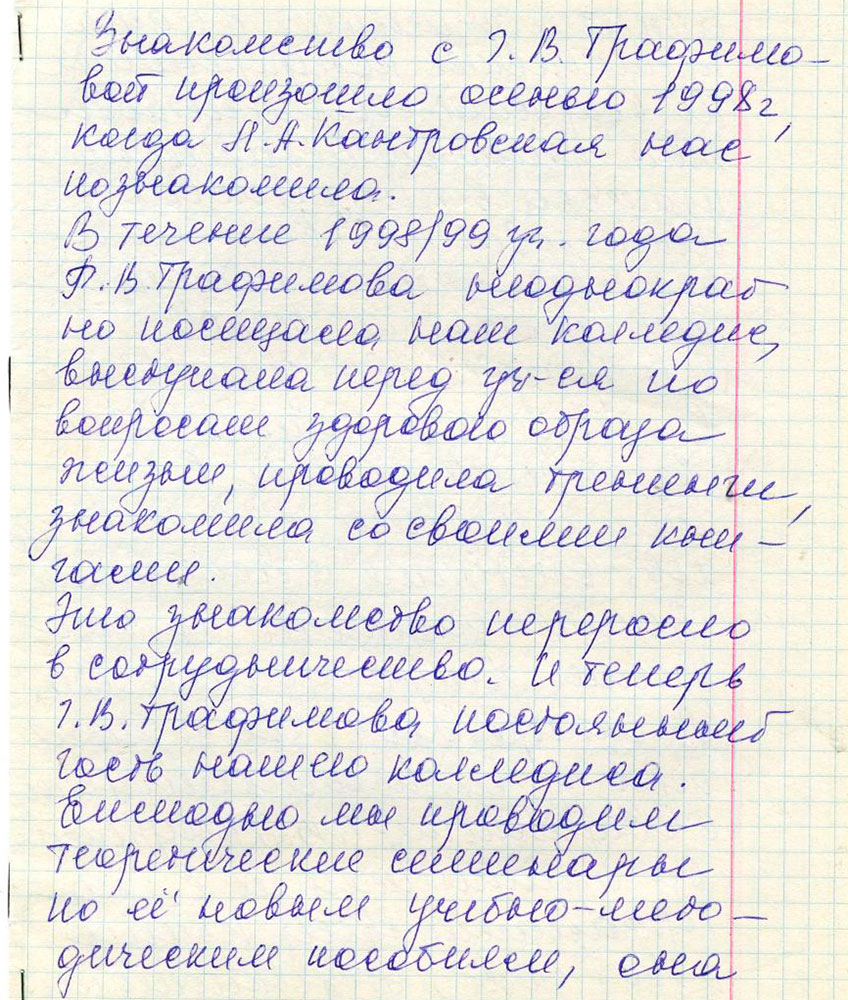 Знакомство с Г. В. Трафимо-
вой произошло осенью 1998 г,
когда Л. А. Кантровская нас
познакомила.
В течение 1998/99 уч. года
Г. В. Трафимова неоднократ
но посещала наш колледж,
выступала перед уч-ся по
вопросам здорового образа
жизни, проводила тренинги,
знакомила со своими кни-
гами.
Это знакомство переросло
в сотрудничество. И теперь
Г. В. Трафимова постоянный
гость нашего колледжа.
Ежегодно мы проводим
теоретические семинары
по её новым учебно-мето-
дическим пособиям, она